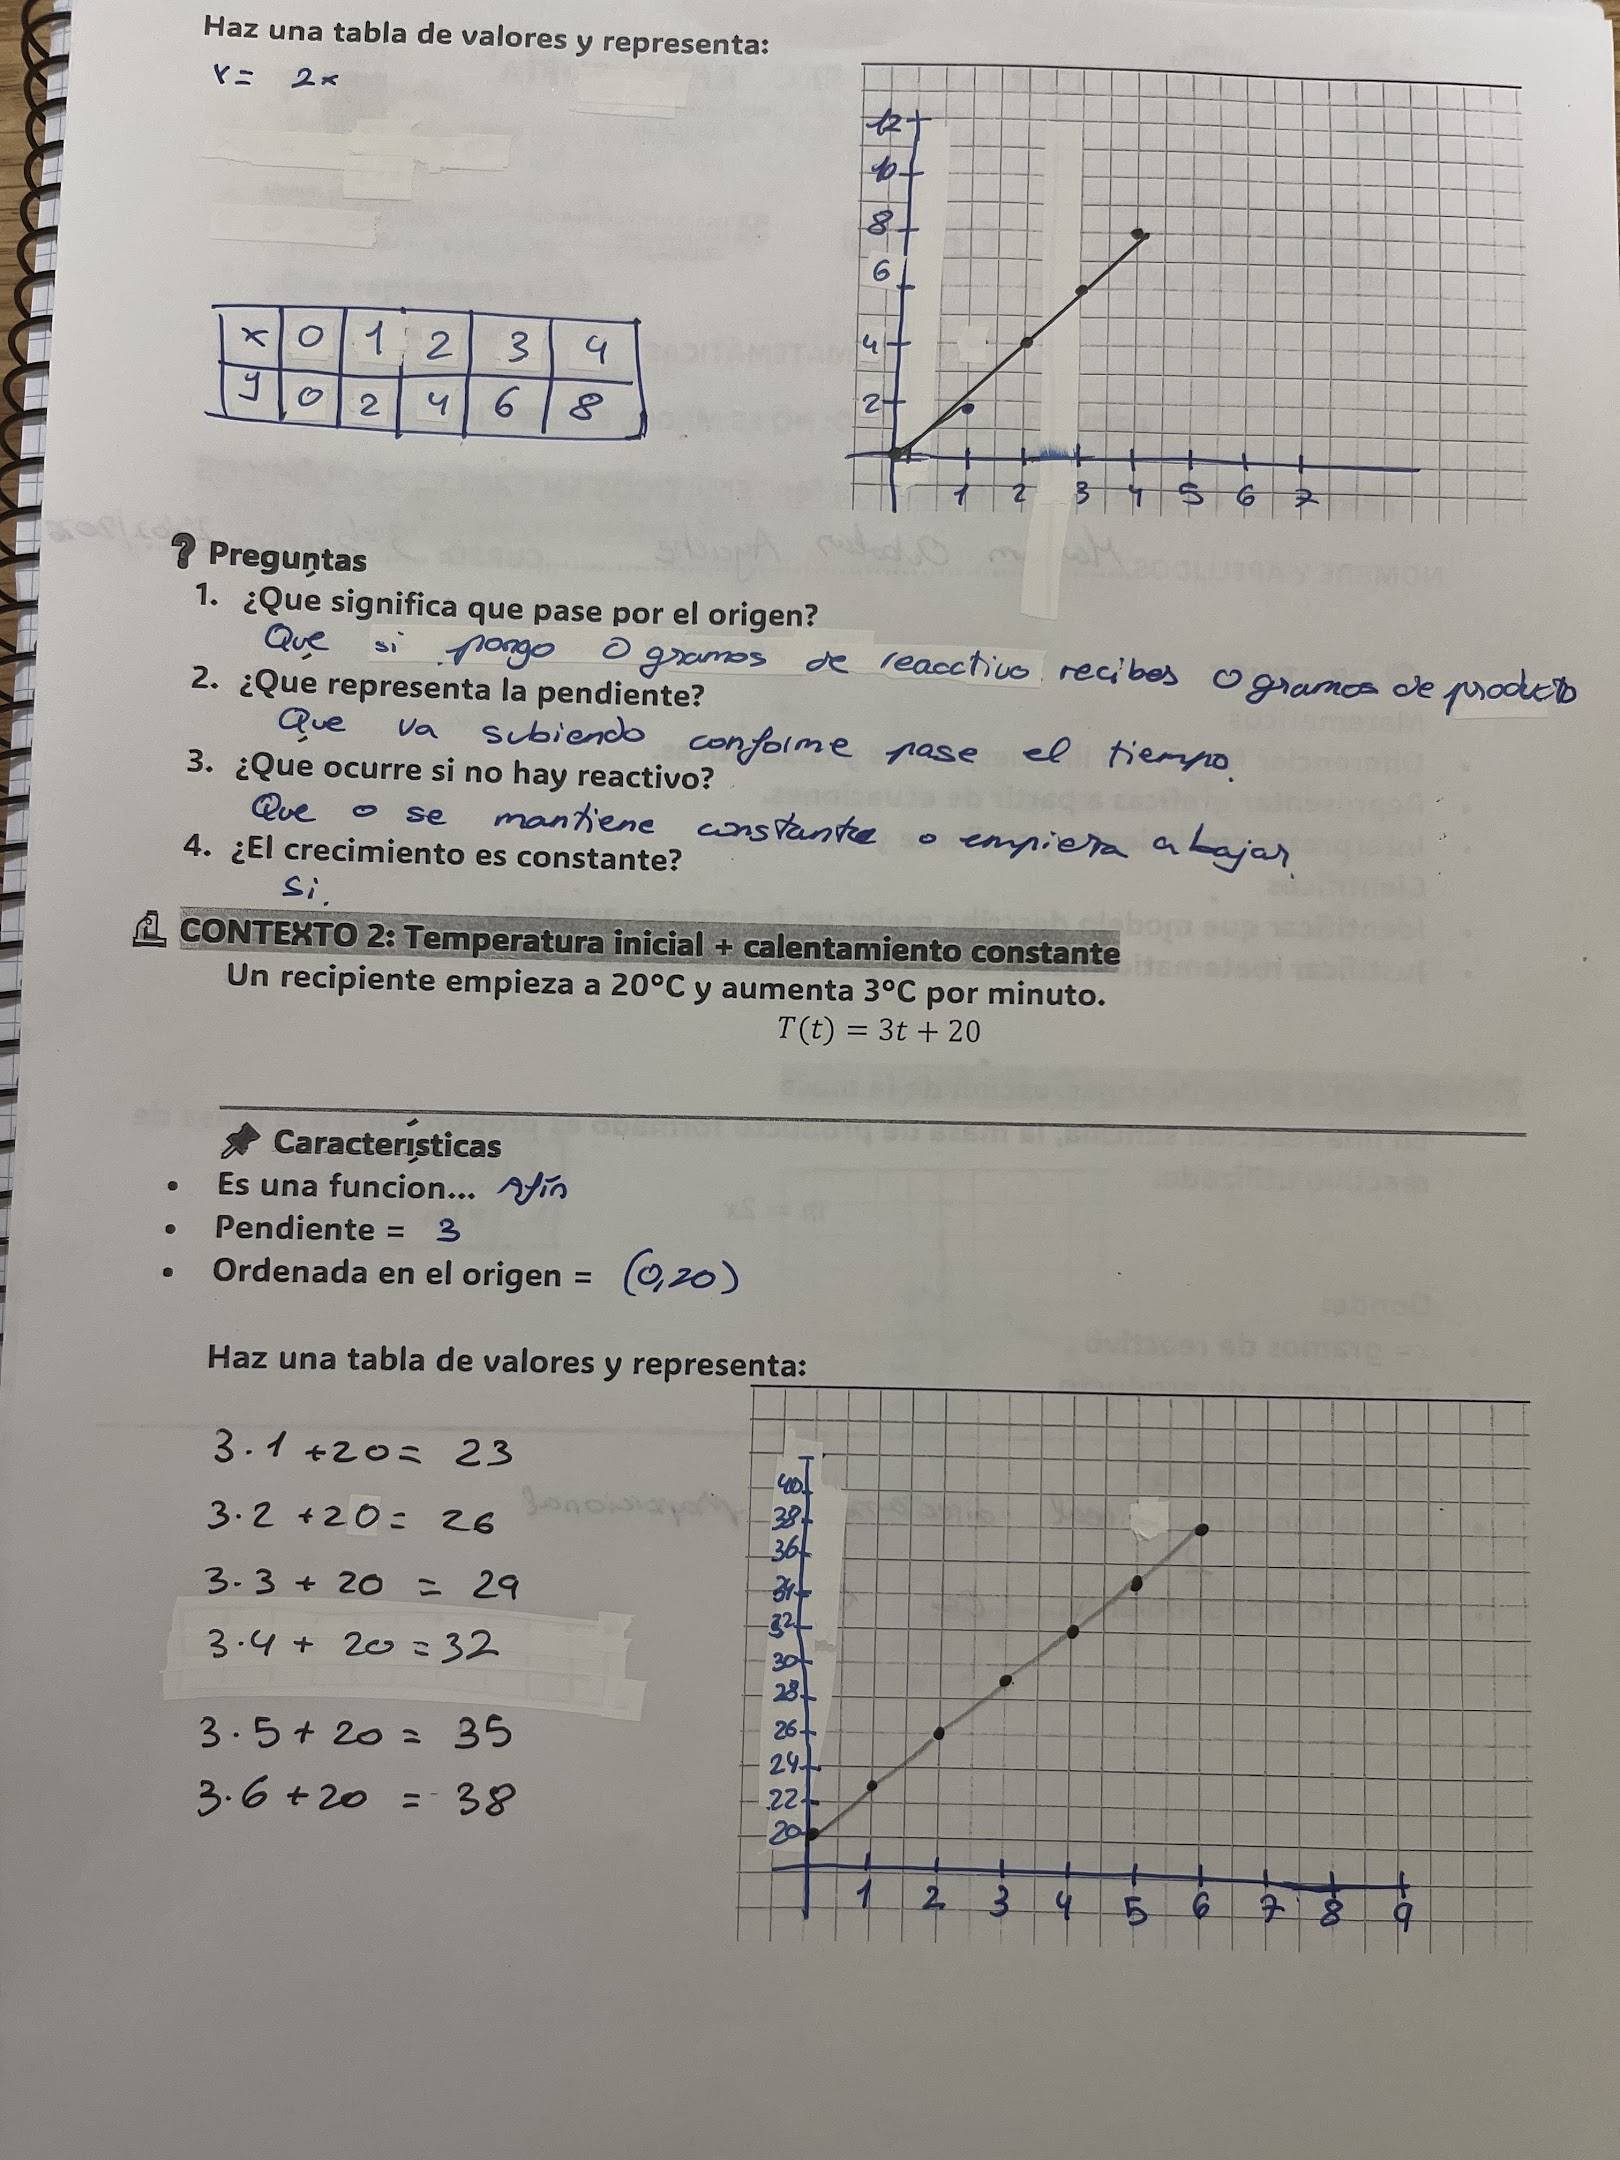 Haz una tabla de valores y representa:
Y = 2x
12
10
8
6
4
2
1 2 3 4 5 6 7
x 0 1 2 3 4
y 0 2 4 6 8
? Preguntas
1. ¿Que significa que pase por el origen?
Que si pongo 0 gramos de reacctivo recibes 0 gramos de producto
2. ¿Que representa la pendiente?
Que va subiendo conforme pase el tiempo.
3. ¿Que ocurre si no hay reactivo?
Que o se mantiene constante o empieza a bajar.
4. ¿El crecimiento es constante?
Si.
CONTEXTO 2: Temperatura inicial + calentamiento constante
Un recipiente empieza a 20°C y aumenta 3°C por minuto.
T(t) = 3t + 20
Características
• Es una funcion... Afín
• Pendiente = 3
• Ordenada en el origen = (0,20)
Haz una tabla de valores y representa:
3·1 +20= 23
3·2 +20= 26
3·3 + 20 = 29
3·4 + 20 =32
3·5 + 20 = 35
3·6 +20 = 38
40
38
36
34
32
30
28
26
24
22
20
1 2 3 4 5 6 7 8 9